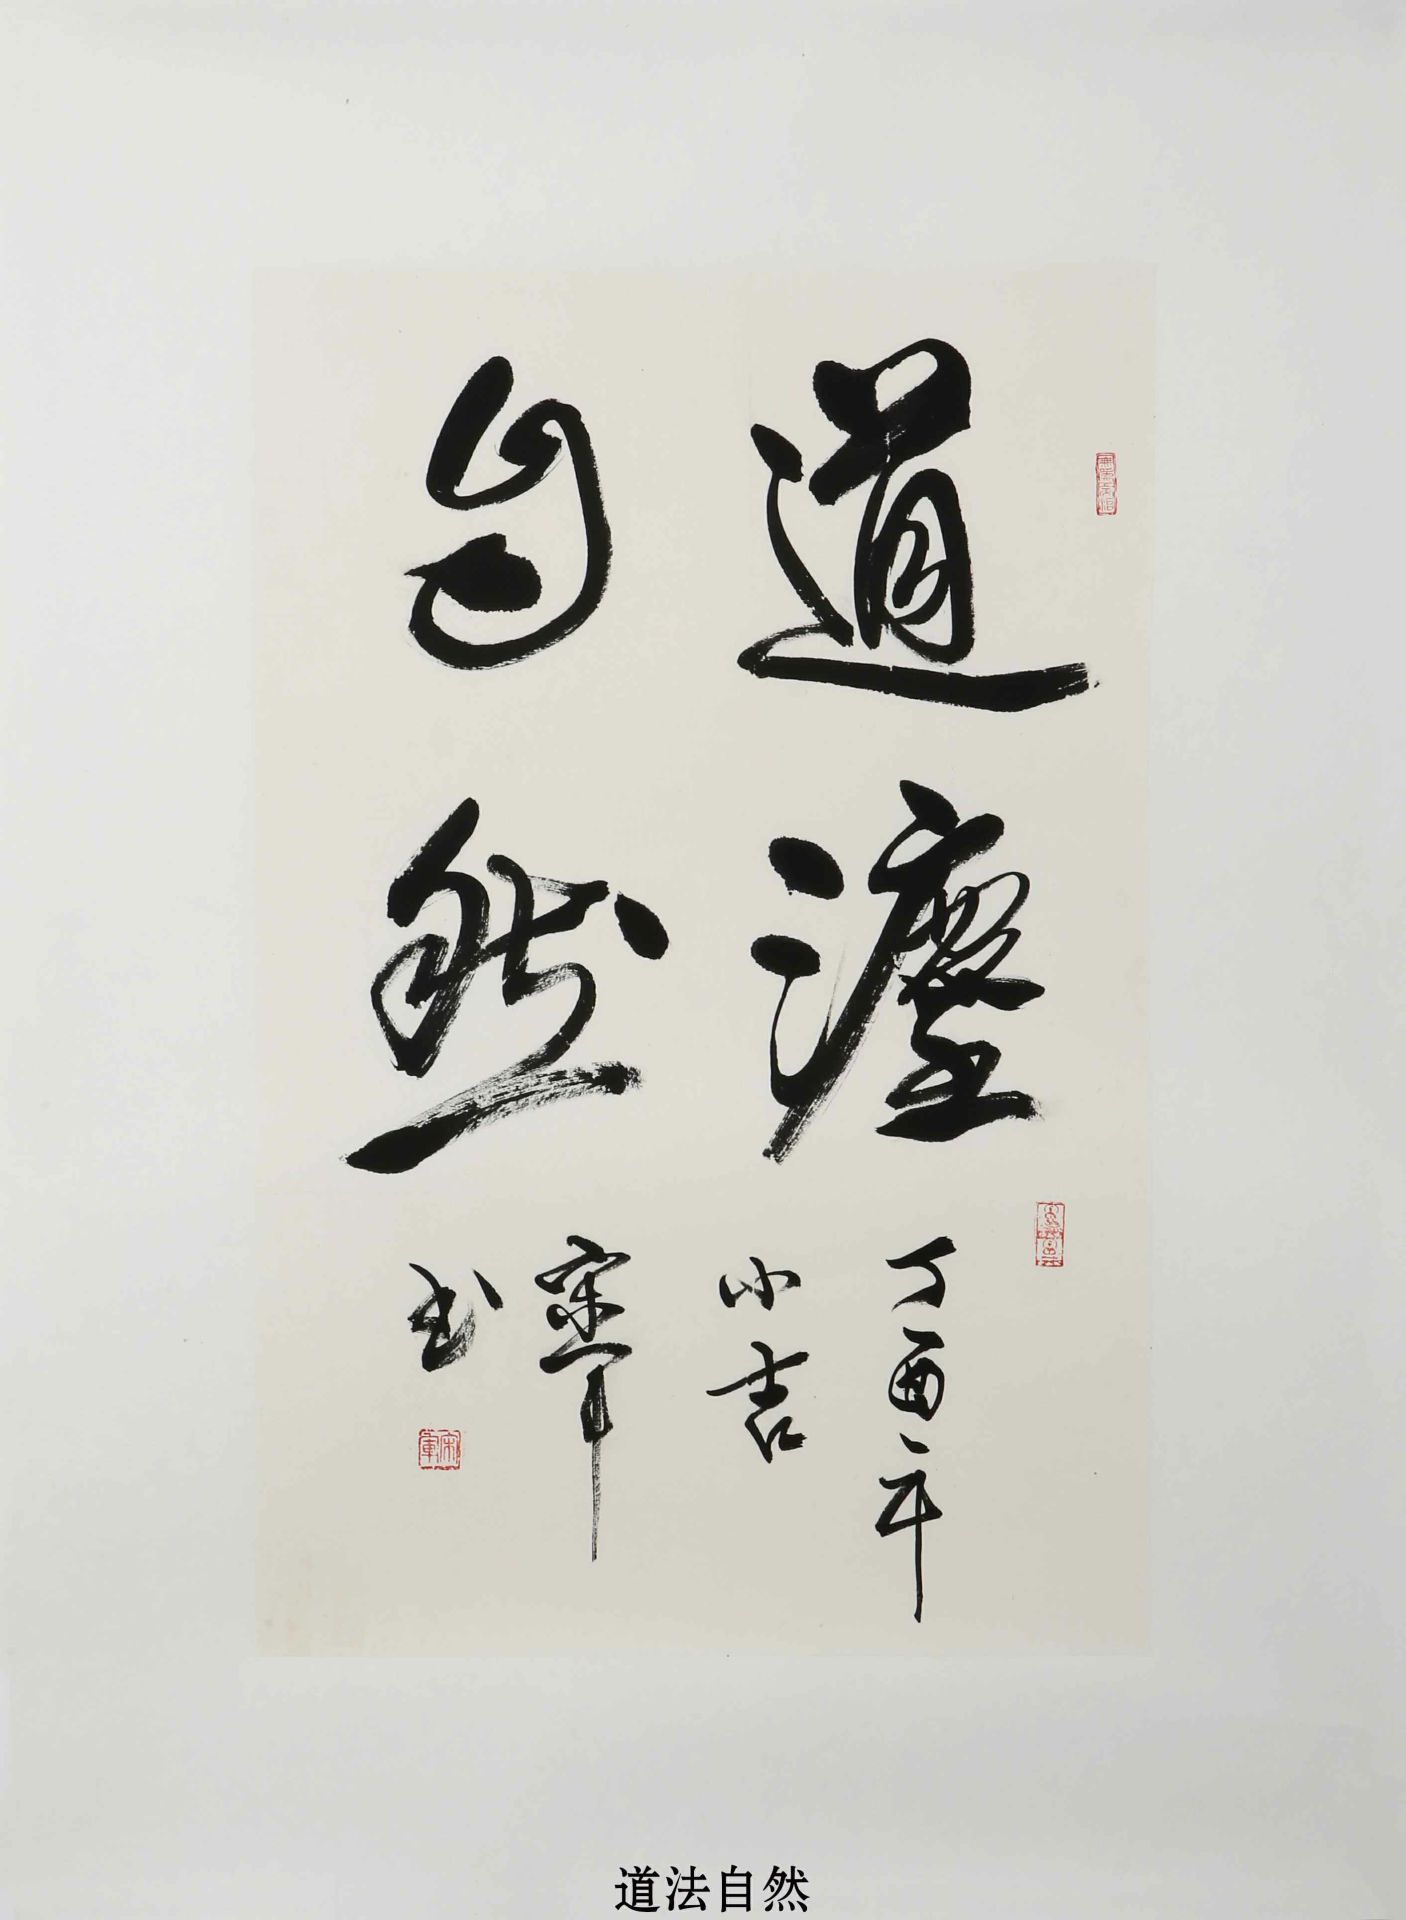 道灋
自然
丁酉年
小吉
宋军
书
宋军
道法自然